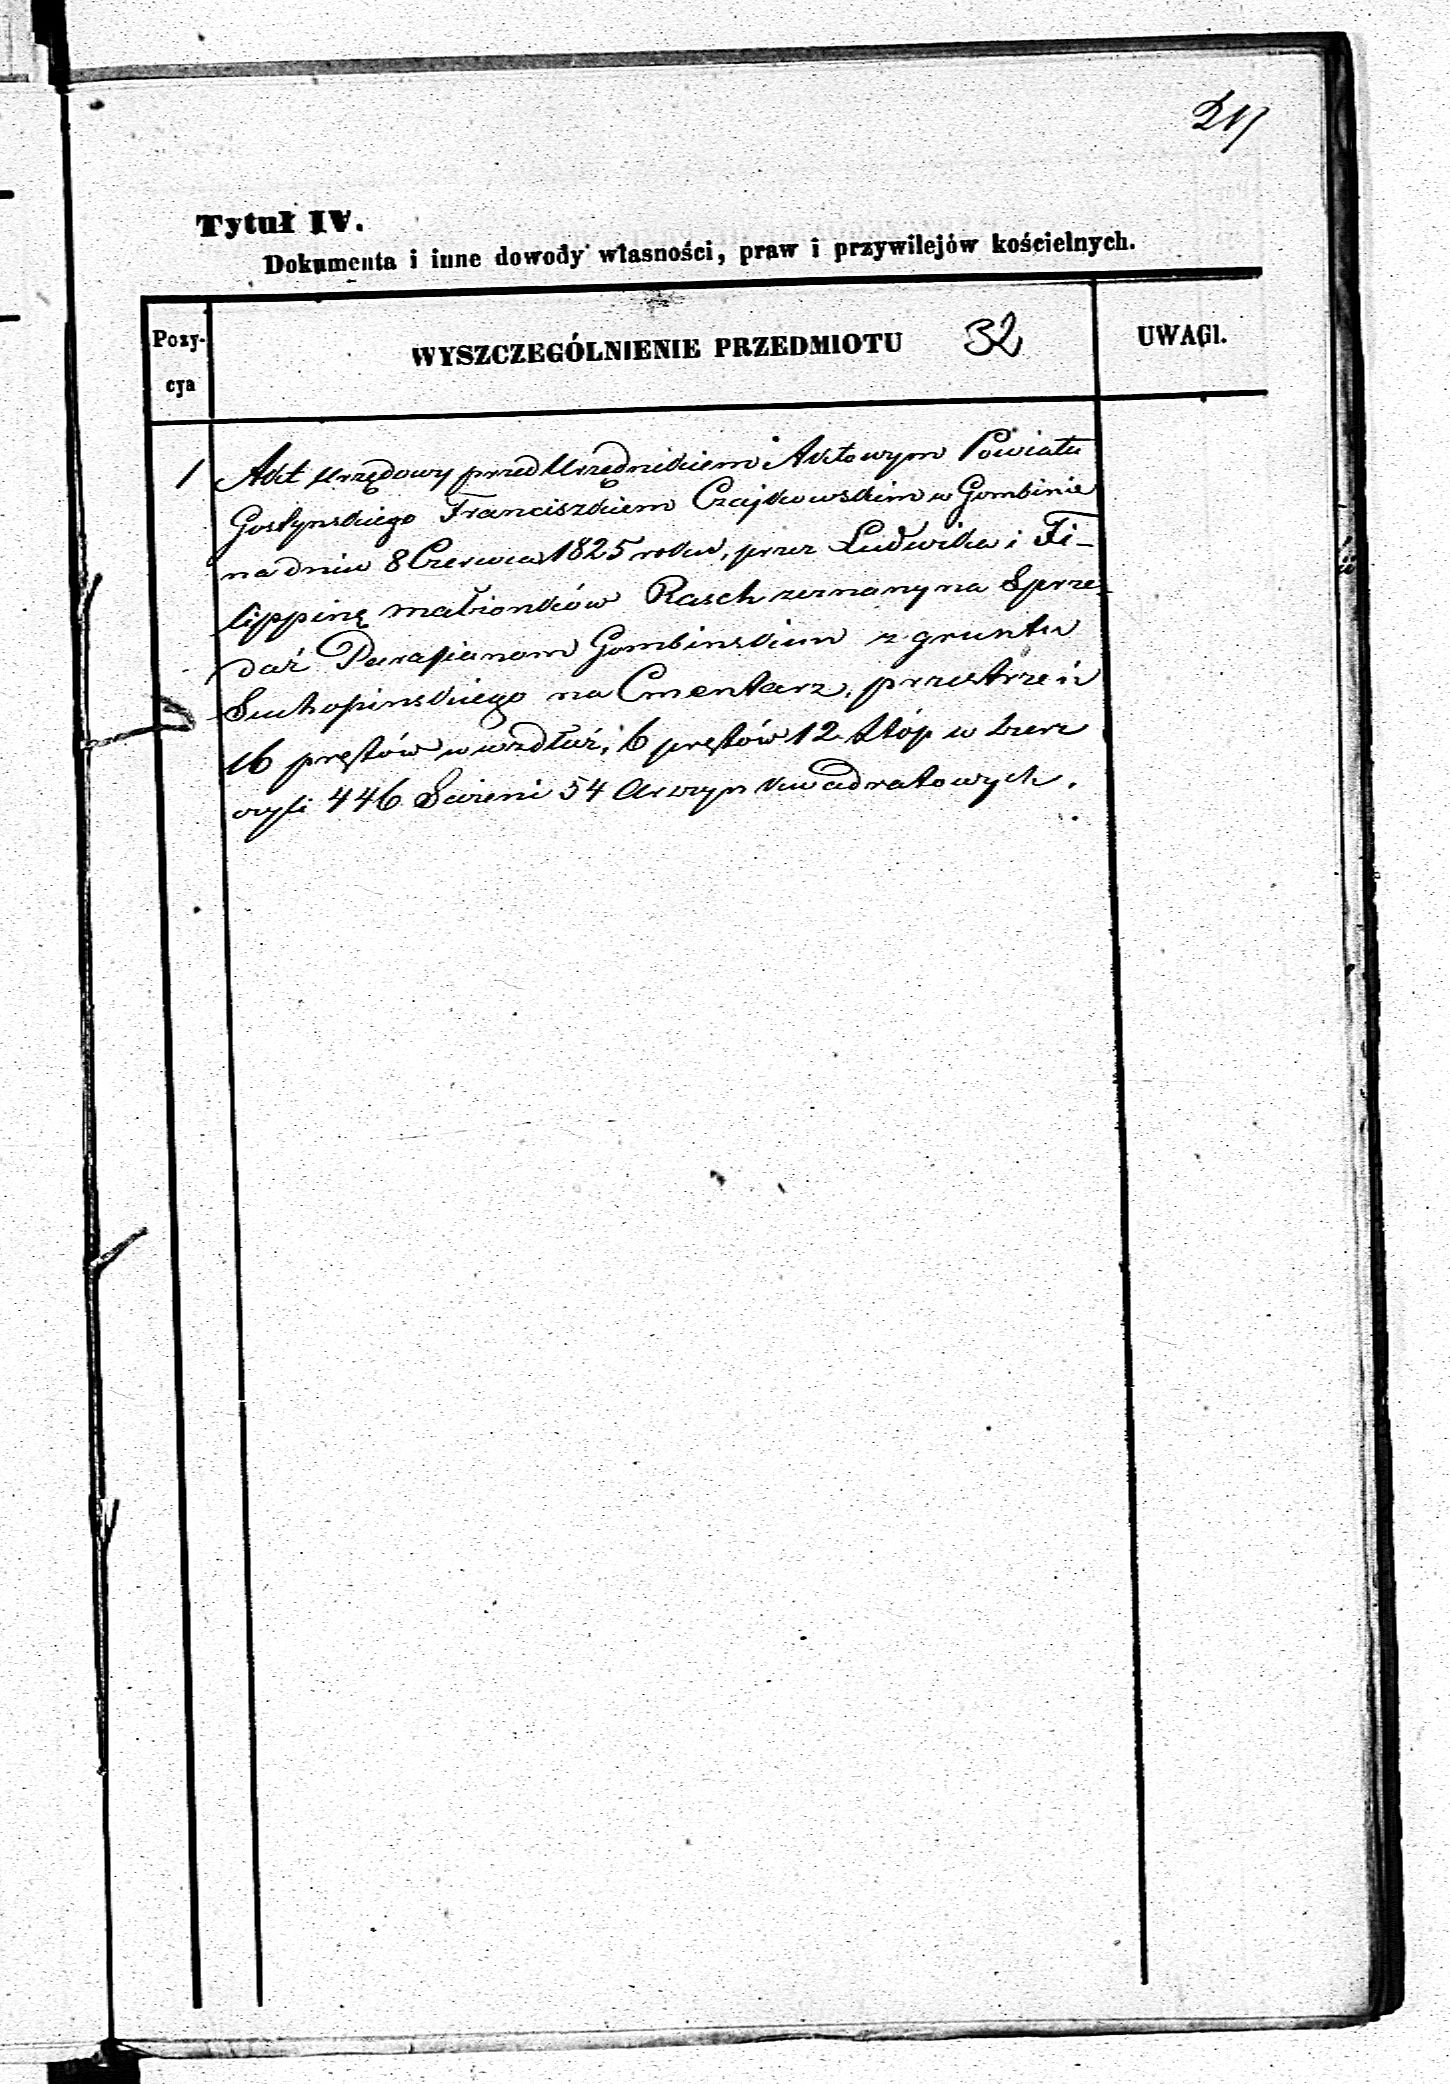 Tytuł IV.
Dokumenta i inne dowody własności, praw i przywilejów kościelnych.
Pozy-
cya
WYSZCZEGÓLNIENIE PRZEDMIOTU 32
UWAGI.
1 Akt urzędowy przed Urzędnikiem Aktowym Powiatu
Gostynskiego Franciszkiem Czajkowskim w Gombinie
na dniu 8 Czerwca 1825 roku, przez Ludwika i Fi-
lippinę małżonków Rasch zeznany na Sprze-
daż Parafianom Gombinskim z gruntu
na Cmentarz, przestrzeń
16 prętów wzdłuż, 6 prętów 12 stóp w szerz
czyli 446 Sążeni 54 Arszyn kwadratowych.